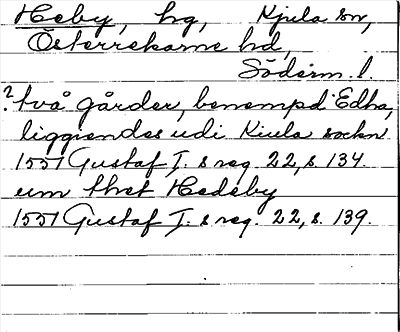 Heby, hg, Kjula sn,
Österrekarne hd,
Söderm. l.
? två gårder, benempd Edha,
liggiendes udi Kiula sockn
1551 Gustaf I. s reg. 22, s. 134.
um thret Hedeby
1551 Gustaf I. s reg. 22, s. 139.